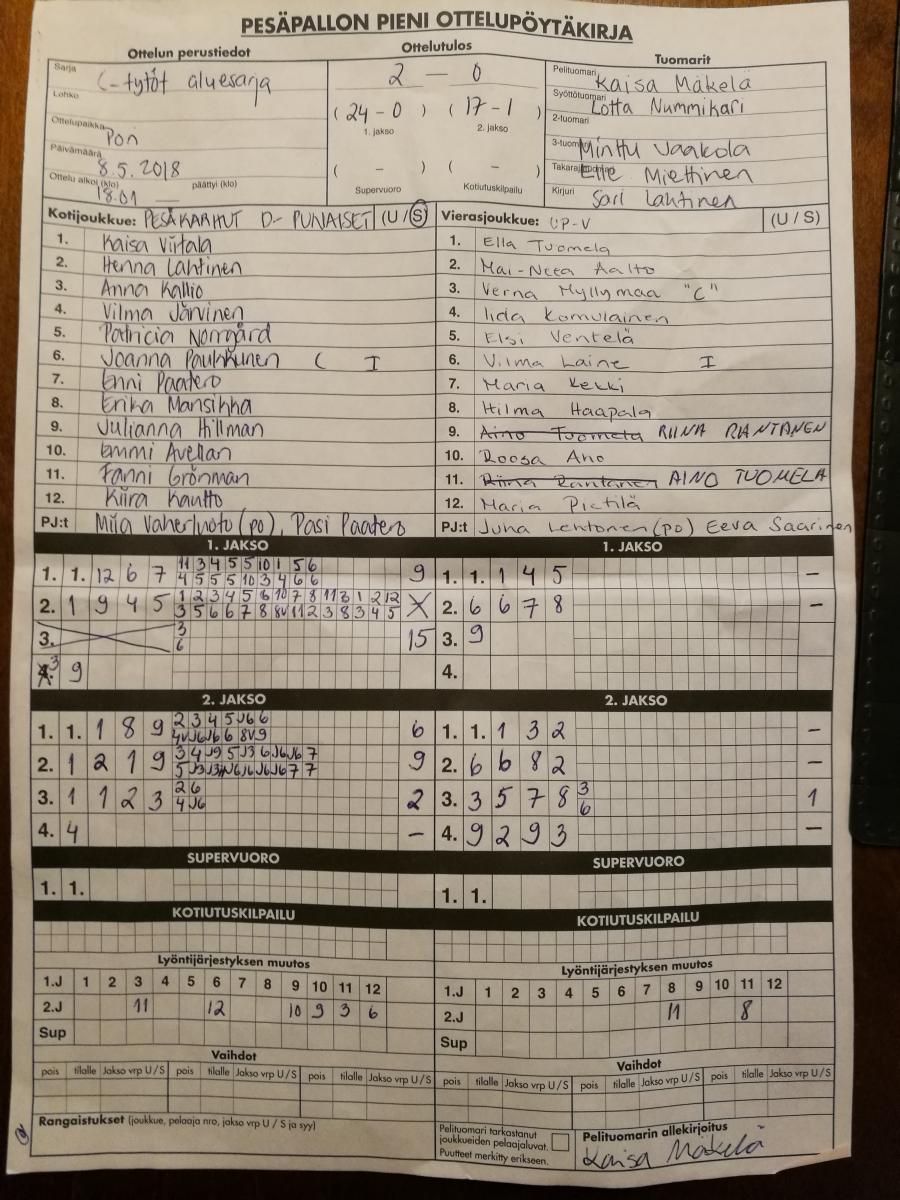 PESÄPALLON PIENI OTTELUPÖYTÄKIRJA
Ottelun perustiedot
Ottelutulos
Tuomarit
Sarja C-tytöt aluesarja
Lohko
Ottelupaikka Pori
Päivämäärä 8.5.2018
Ottelu alkoi (klo) 18.01 päättyi (klo)
2 – 0
( 24 - 0 ) ( 17 - 1 )
1. jakso 2. jakso
( - ) ( - )
Supervuoro Kotiutuskilpailu
Pelituomari Kaisa Mäkelä
Syöttötuomari Lotta Nummikari
2-tuomari
3-tuomari Minttu Vaakola
Takarajatuomari Elle Miettinen
Kirjuri Sari Lahtinen
Kotijoukkue: PESÄKARHUT D- PUNAISET (U / S)
1. Kaisa Virtala
2. Henna Lahtinen
3. Anna Kallio
4. Vilma Järvinen
5. Patricia Norrgård
6. Joanna Paukkunen C I
7. Enni Paatero
8. Erika Mansikka
9. Julianna Hillman
10. Emmi Avellan
11. Fanni Grönman
12. Kiira Kautto
PJ:t Miia Vaherluoto (po), Pasi Paatero
Vierasjoukkue: UP-V (U / S)
1. Ella Tuomela
2. Mai-Neea Aalto
3. Verna Myllymaa "C"
4. Iida Komulainen
5. Elsi Ventelä
6. Vilma Laine I
7. Maria Kekki
8. Hilma Haapala
9. Aino Tuomela RIINA RANTANEN
10. Roosa Aho
11. Riina Rantanen AINO TUOMELA
12. Maria Pietilä
PJ:t Juha Lehtonen (po) Eeva Saarinen
1. JAKSO
11 3 4 5 5 10 1 5 6
1. 1. 12 6 7 4 5 5 5 10 3 4 6 6 9
2. 1 9 4 5 X
3. 3 6 15
3 9
1. JAKSO
1. 1. 1 4 5 –
2. 6 6 7 8 –
3. 9
4.
2. JAKSO
1. 1. 1 8 9 6
2. 1 2 1 9 9
3. 1 1 2 3 2 6 4 J6 2
4. 4 –
2. JAKSO
1. 1. 1 3 2 –
2. 6 6 8 2 –
3. 3 5 7 8 3 6 1
4. 9 2 9 3 –
SUPERVUORO
1. 1.
SUPERVUORO
1. 1.
KOTIUTUSKILPAILU
KOTIUTUSKILPAILU
Lyöntijärjestyksen muutos
1.J 1 2 3 4 5 6 7 8 9 10 11 12
2.J 11 12 10 9 3 6
Sup
Lyöntijärjestyksen muutos
1.J 1 2 3 4 5 6 7 8 9 10 11 12
2.J 11 8
Sup
Vaihdot
pois tilalle Jakso vrp U / S pois tilalle Jakso vrp U / S pois tilalle Jakso vrp U / S
Vaihdot
pois tilalle Jakso vrp U / S pois tilalle Jakso vrp U / S pois tilalle Jakso vrp U / S
Rangaistukset (joukkue, pelaaja nro, jakso vrp U / S ja syy)
Pelituomari tarkastanut
joukkueiden pelaajaluvat.
Puutteet merkitty erikseen.
Pelituomarin allekirjoitus
Kaisa Mäkelä